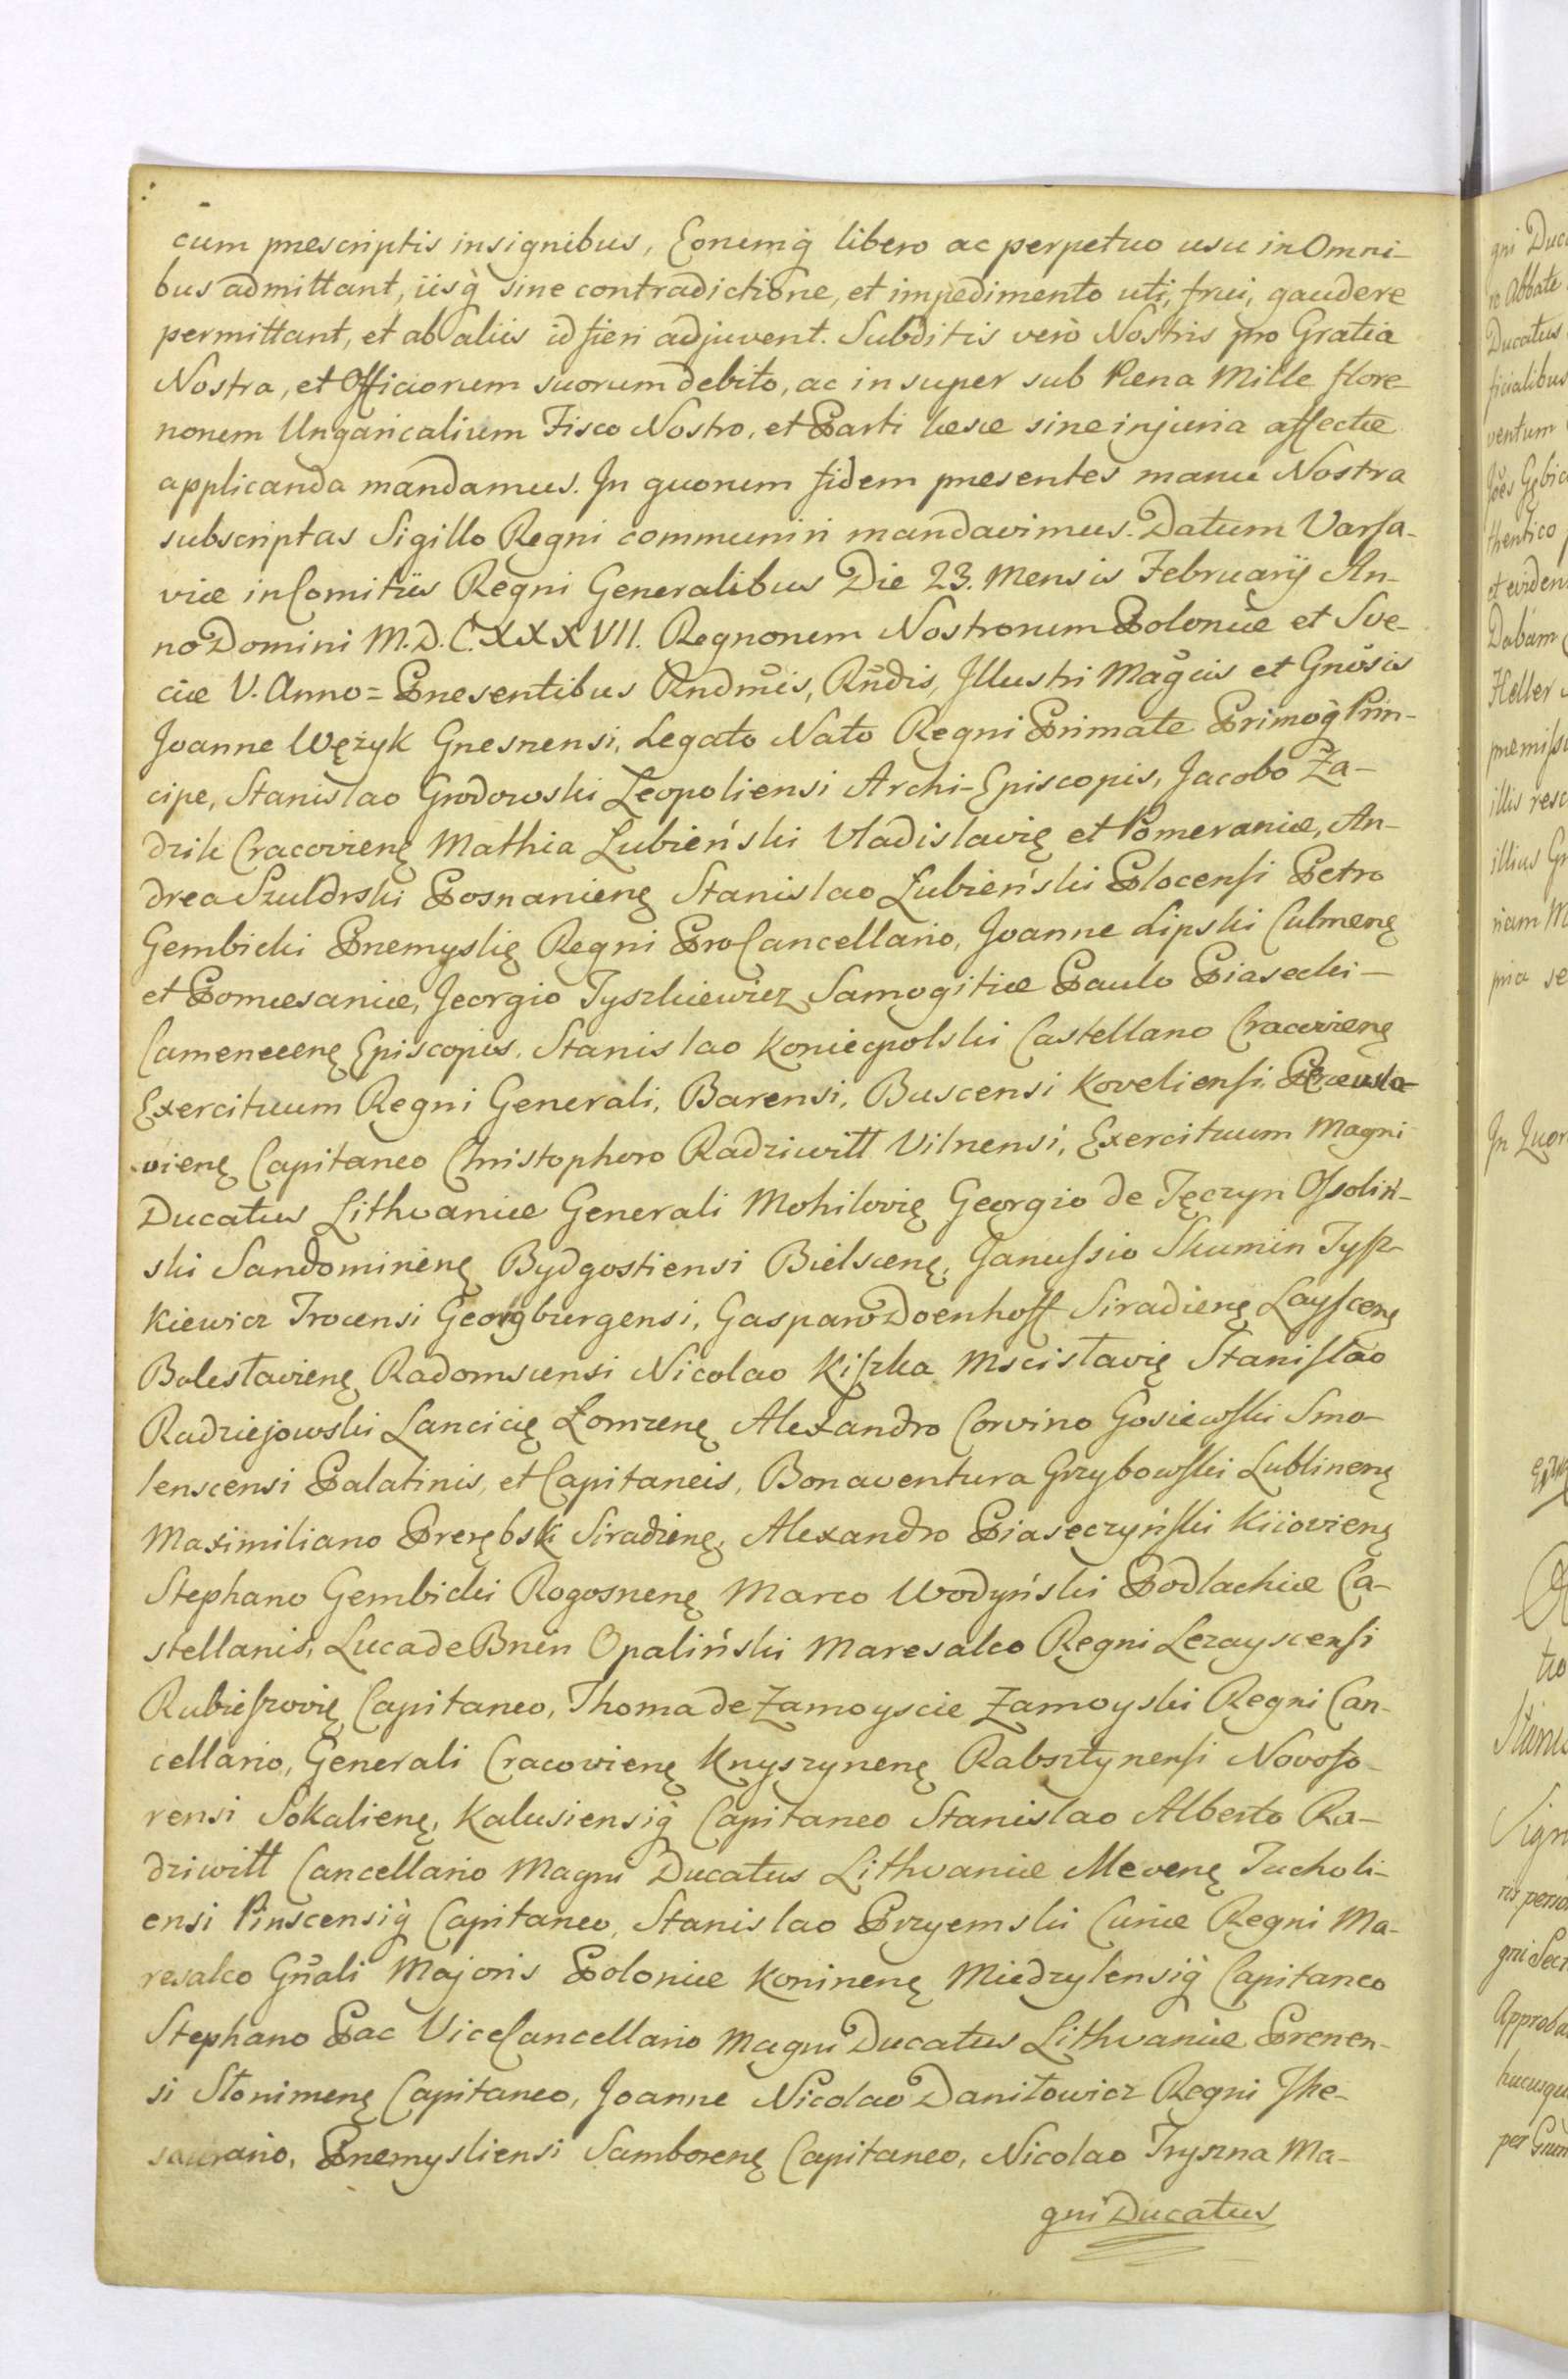 cum præscriptis insignibus, Eorumq̀ libero ac perpetuo usu in Omni-
bus admittant, iisq̀ sine contradictione, et impedimento uti, frui, gaudere
permittant, et ab aliis id fieri adjuvent. Subditis verò Nostris pro Gratia
Nostra, et Officiorum suorum debito, ac insuper sub Pœna Mille flore
norum Ungaricalium Fisco Nostro, et Parti læsæ sine injuria affectæ
applicanda mandamus. In quorum fidem præsentes manu Nostra
subscriptas Sigillo Regni communiri mandavimus. Datum Varsa-
viæ in Comitiis Regni Generalibus Die 23. Mensis Februarij An-
no Domini M.D.C.XXXVII. Regnorum Nostrorum Poloniæ et Sve-
ciæ V. Anno = Præsentibus Rndm̃is, Rñdis, Illustri Mag̃cis et Gnõsis
Joanne Wężyk Gnesnensi, Legato Nato Regni Primate Primoq̀ Prin-
cipe, Stanislao Grodowski Leopoliensi Archi-Episcopis, Jacobo Za-
dzik Cracovienę Mathia Lubieński Vladislavię et Pomeraniæ, An-
drea Szuldrski Posnanienę Stanislao Łubieński Plocensi Petro
Gembicki Premyslię Regni ProCancellario, Joanne Lipski Culmenę
et Pomesaniæ, Georgio Tyszkiewicz Samogitiæ Paulo Piasecki —
Camenecenę Episcopis. Stanislao Koniecpolski Castellano Cracovienę
Exercituum Regni Generali, Barensi, Buscensi Koveliensi Pereasla-
vienę Capitaneo Christophoro Radziwiłł Vilnensi, Exercituum Magni
Ducatus Lithvaniæ Generali Mohilovię Georgio de Tęczyn Ossoliń-
ski Sandomirienę Bydgostiensi Bielscenę, Janussio Skumin Tysz-
kiewicz Trocensi Georgburgensi, Gasparo Doenhoff Siradienę Layscenę
Bolesłavienę Radomscensi Nicolao Kiszka Mscisłavię Stanislao
Radziejowski Lancicię Łomzenę Alexandro Corvino Gosiewski Smo-
lenscensi Palatinis, et Capitaneis, Bonaventura Grzybowski Lublinenę
Maximiliano Prerębski Siradienę, Alexandro Piaseczyński Kiiovienę
Stephano Gembicki Rogosnenę Marco Wodyński Podlachiæ Ca-
stellanis, Luca de Bnin Opaliński Maresalco Regni Lezayscensi
Rubieszovię Capitaneo, Thoma de Zamoyscie Zamoyski Regni Can-
cellario, Generali Cracovienę Knyszynenę Rabsztynensi Novoso-
rensi Sokalienę, Kalusiensiq̀ Capitaneo Stanislao Alberto Ra-
dziwiłł Cancellario Magni Ducatus Lithvaniæ Mevenę Tucholi-
ensi Pinscensiq̀ Capitaneo, Stanislao Przyemski Curiæ Regni Ma-
resalco Gñali Majoris Poloniæ Koninenę Miedzylensiq̀ Capitaneo
Stephano Pac ViceCancellario Magni Ducatus Lithvaniæ Prenen-
si Słonimenę Capitaneo, Joanne Nicolao Daniłowicz Regni The-
saurario, Premysliensi Samborenę Capitaneo, Nicolao Tryzna Ma-
gni Ducatus